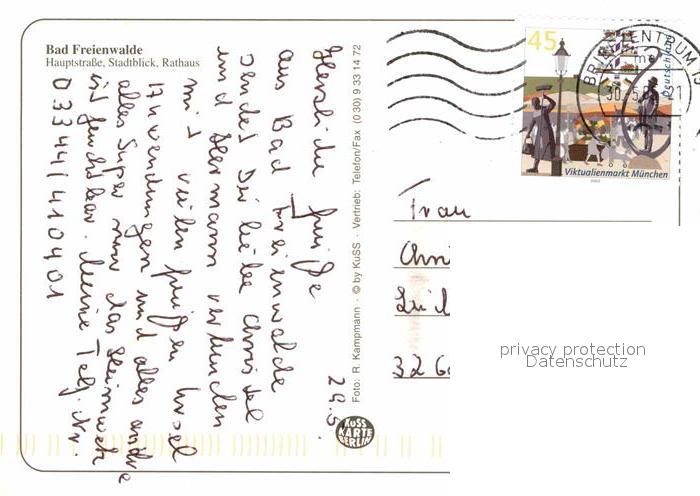 Bad Freienwalde
Hauptstraße, Stadtblick, Rathaus
29.5.
Herzliche Grüße
aus Bad Freienwalde
sendet Dir liebe Christel
und Hermann verbunden
mit vielen Grüßen Ursel
Anwendungen und alles andre
alles Super nur das Heimweh
ist furchtbar. Meine Telf. Nr.
03344/410401
Foto: R. Kampmann · © by KüSS · Vertrieb: Telefon/Fax (0 30) 9 33 14 72
KÜSS
KARTE
BERLIN
45
Deutschland
Viktualienmarkt München
BRIEFZENTRUM
Frau
Chri
32 6
privacy protection
Datenschutz